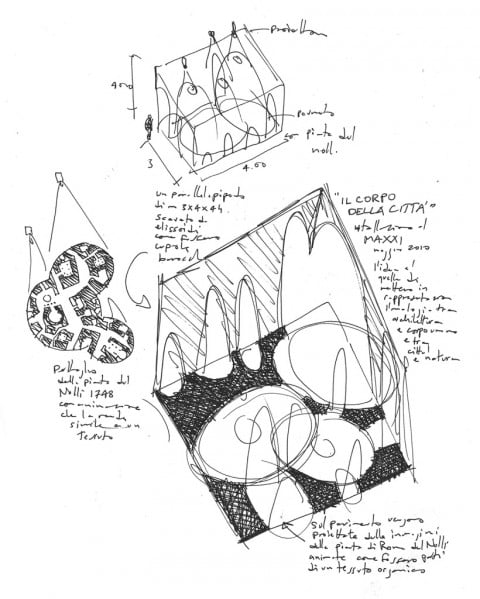 proiettore
4.00
pavimento
con pianta del
Nolli.
3
4.00
un parallelepipedo
di m 3x4x4h
scavato da
elissoidi
come fossero
cupole
barocche
"IL CORPO
DELLA CITTÀ"
installazione al
MAXXI
maggio 2010
l'idea è
quella di
mettere in
rapporto
l'analogia tra
architettura
e corpo umano
e tra
città
e natura
Dettaglio
della pianta del
Nolli 1748
con animazione
che la rende
simile a un
tessuto
Sul pavimento vengono
proiettate delle immagini
della pianta di Roma del Nolli
animate come fossero parti
di un tessuto organico